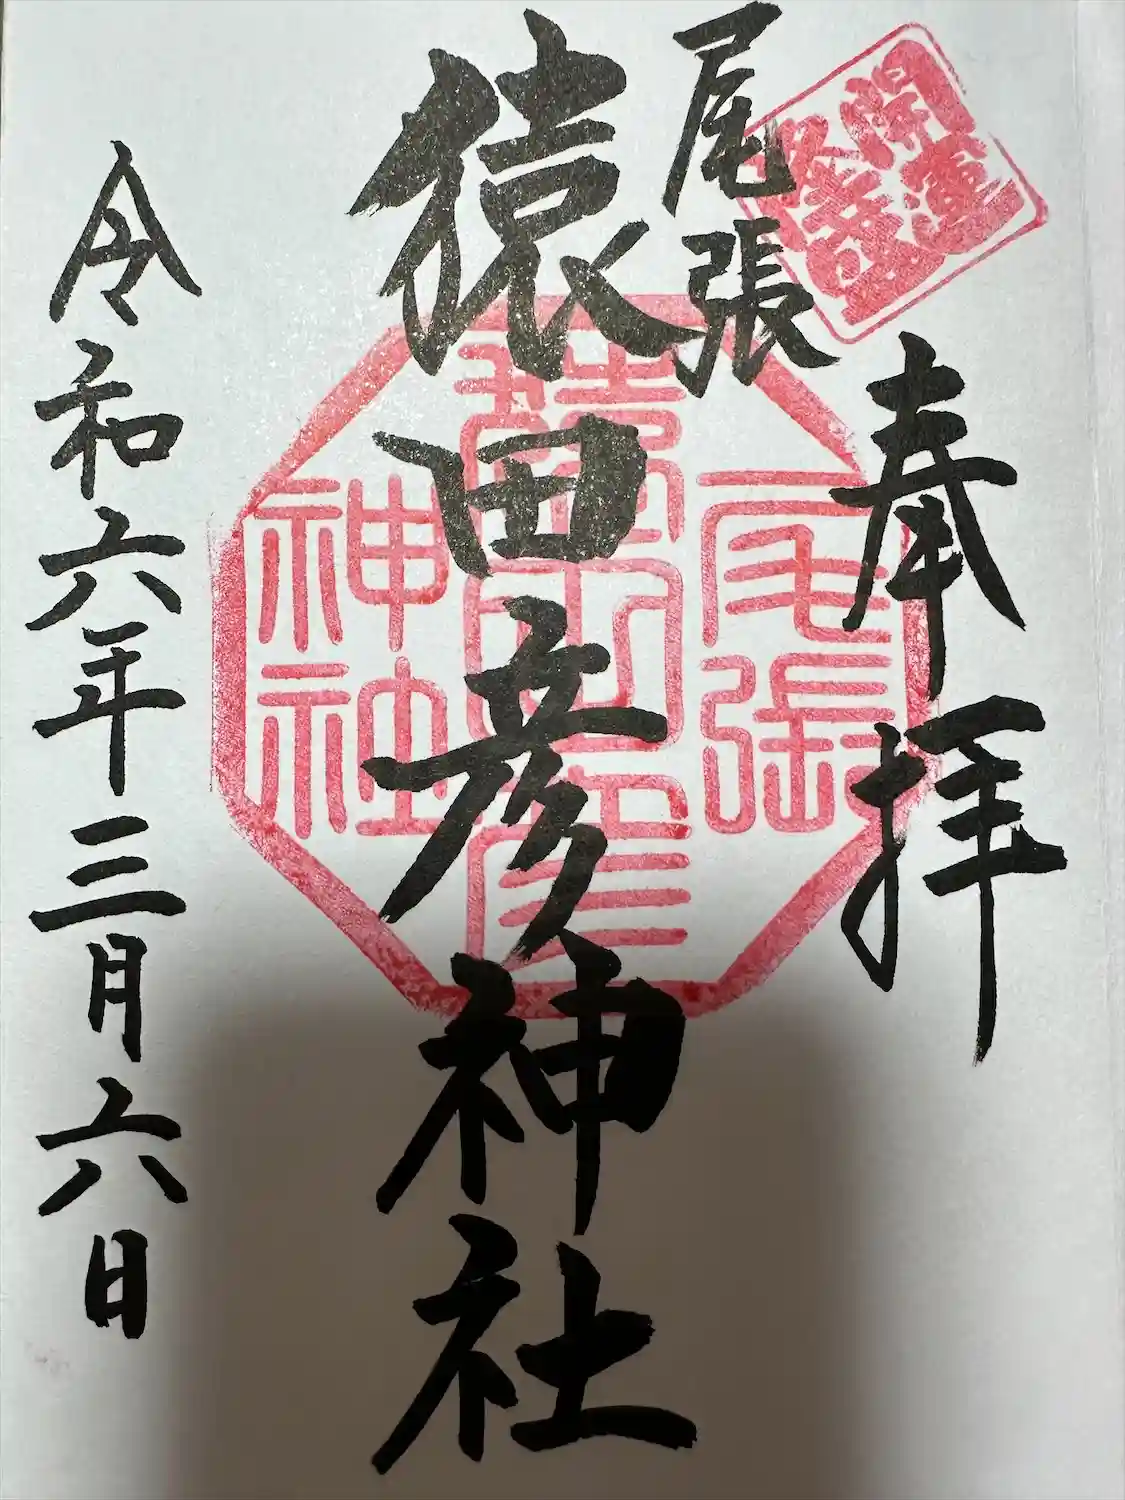 開運
奉拝
尾張
猿田彦神社
尾張
猿田彦
神社
令和六年三月六日